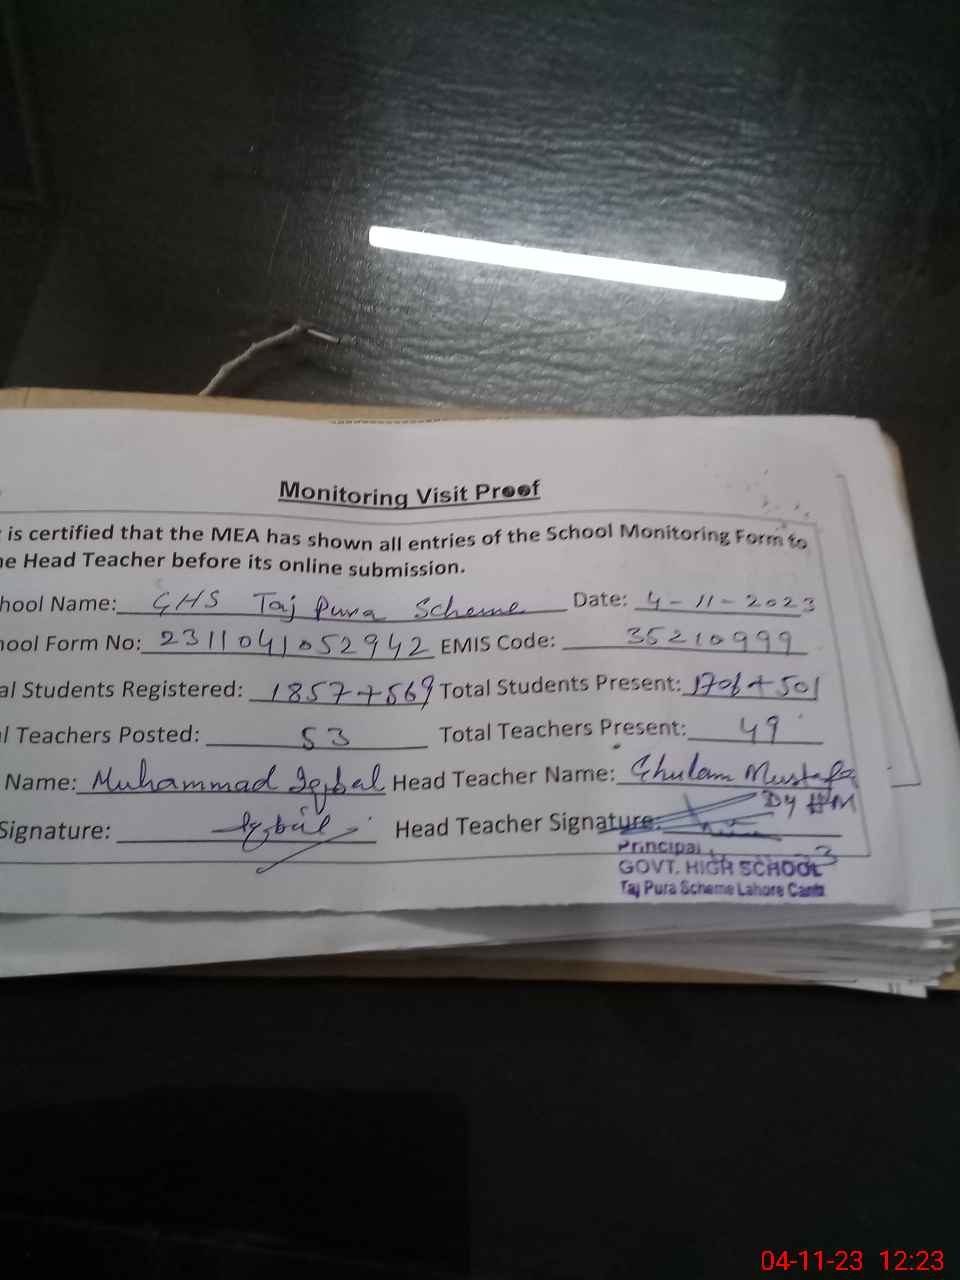 Monitoring Visit Proof
is certified that the MEA has shown all entries of the School Monitoring Form to
e Head Teacher before its online submission.
hool Name: GHS Taj Pura Scheme Date: 4-11-2023
ool Form No: 2311041052942 EMIS Code: 35210999
al Students Registered: 1857+569 Total Students Present: 1706+501
l Teachers Posted: 53 Total Teachers Present: 49
Name: Muhammad Iqbal Head Teacher Name: Ghulam Mustafa
Dy HM
Signature: Iqbal Head Teacher Signature:
Principal
GOVT. HIGH SCHOOL
Taj Pura Scheme Lahore Cantt
04-11-23 12:23